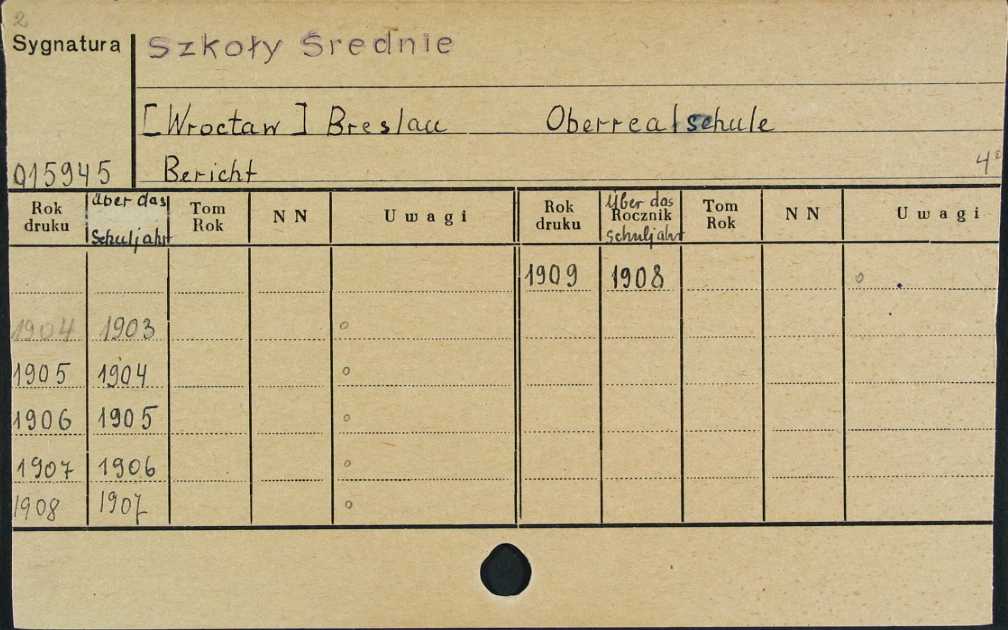 2
Sygnatura Szkoły Średnie
[Wrocław] Breslau Oberrealschule
Q15945 Bericht 4°
Rok druku über das Schuljahr Tom Rok NN Uwagi Rok druku Über das Rocznik Schuljahr Tom Rok NN Uwagi
1909 1908 o
1904 1903 o
1905 1904 o
1906 1905 o
1907 1906 o
1908 1907 o